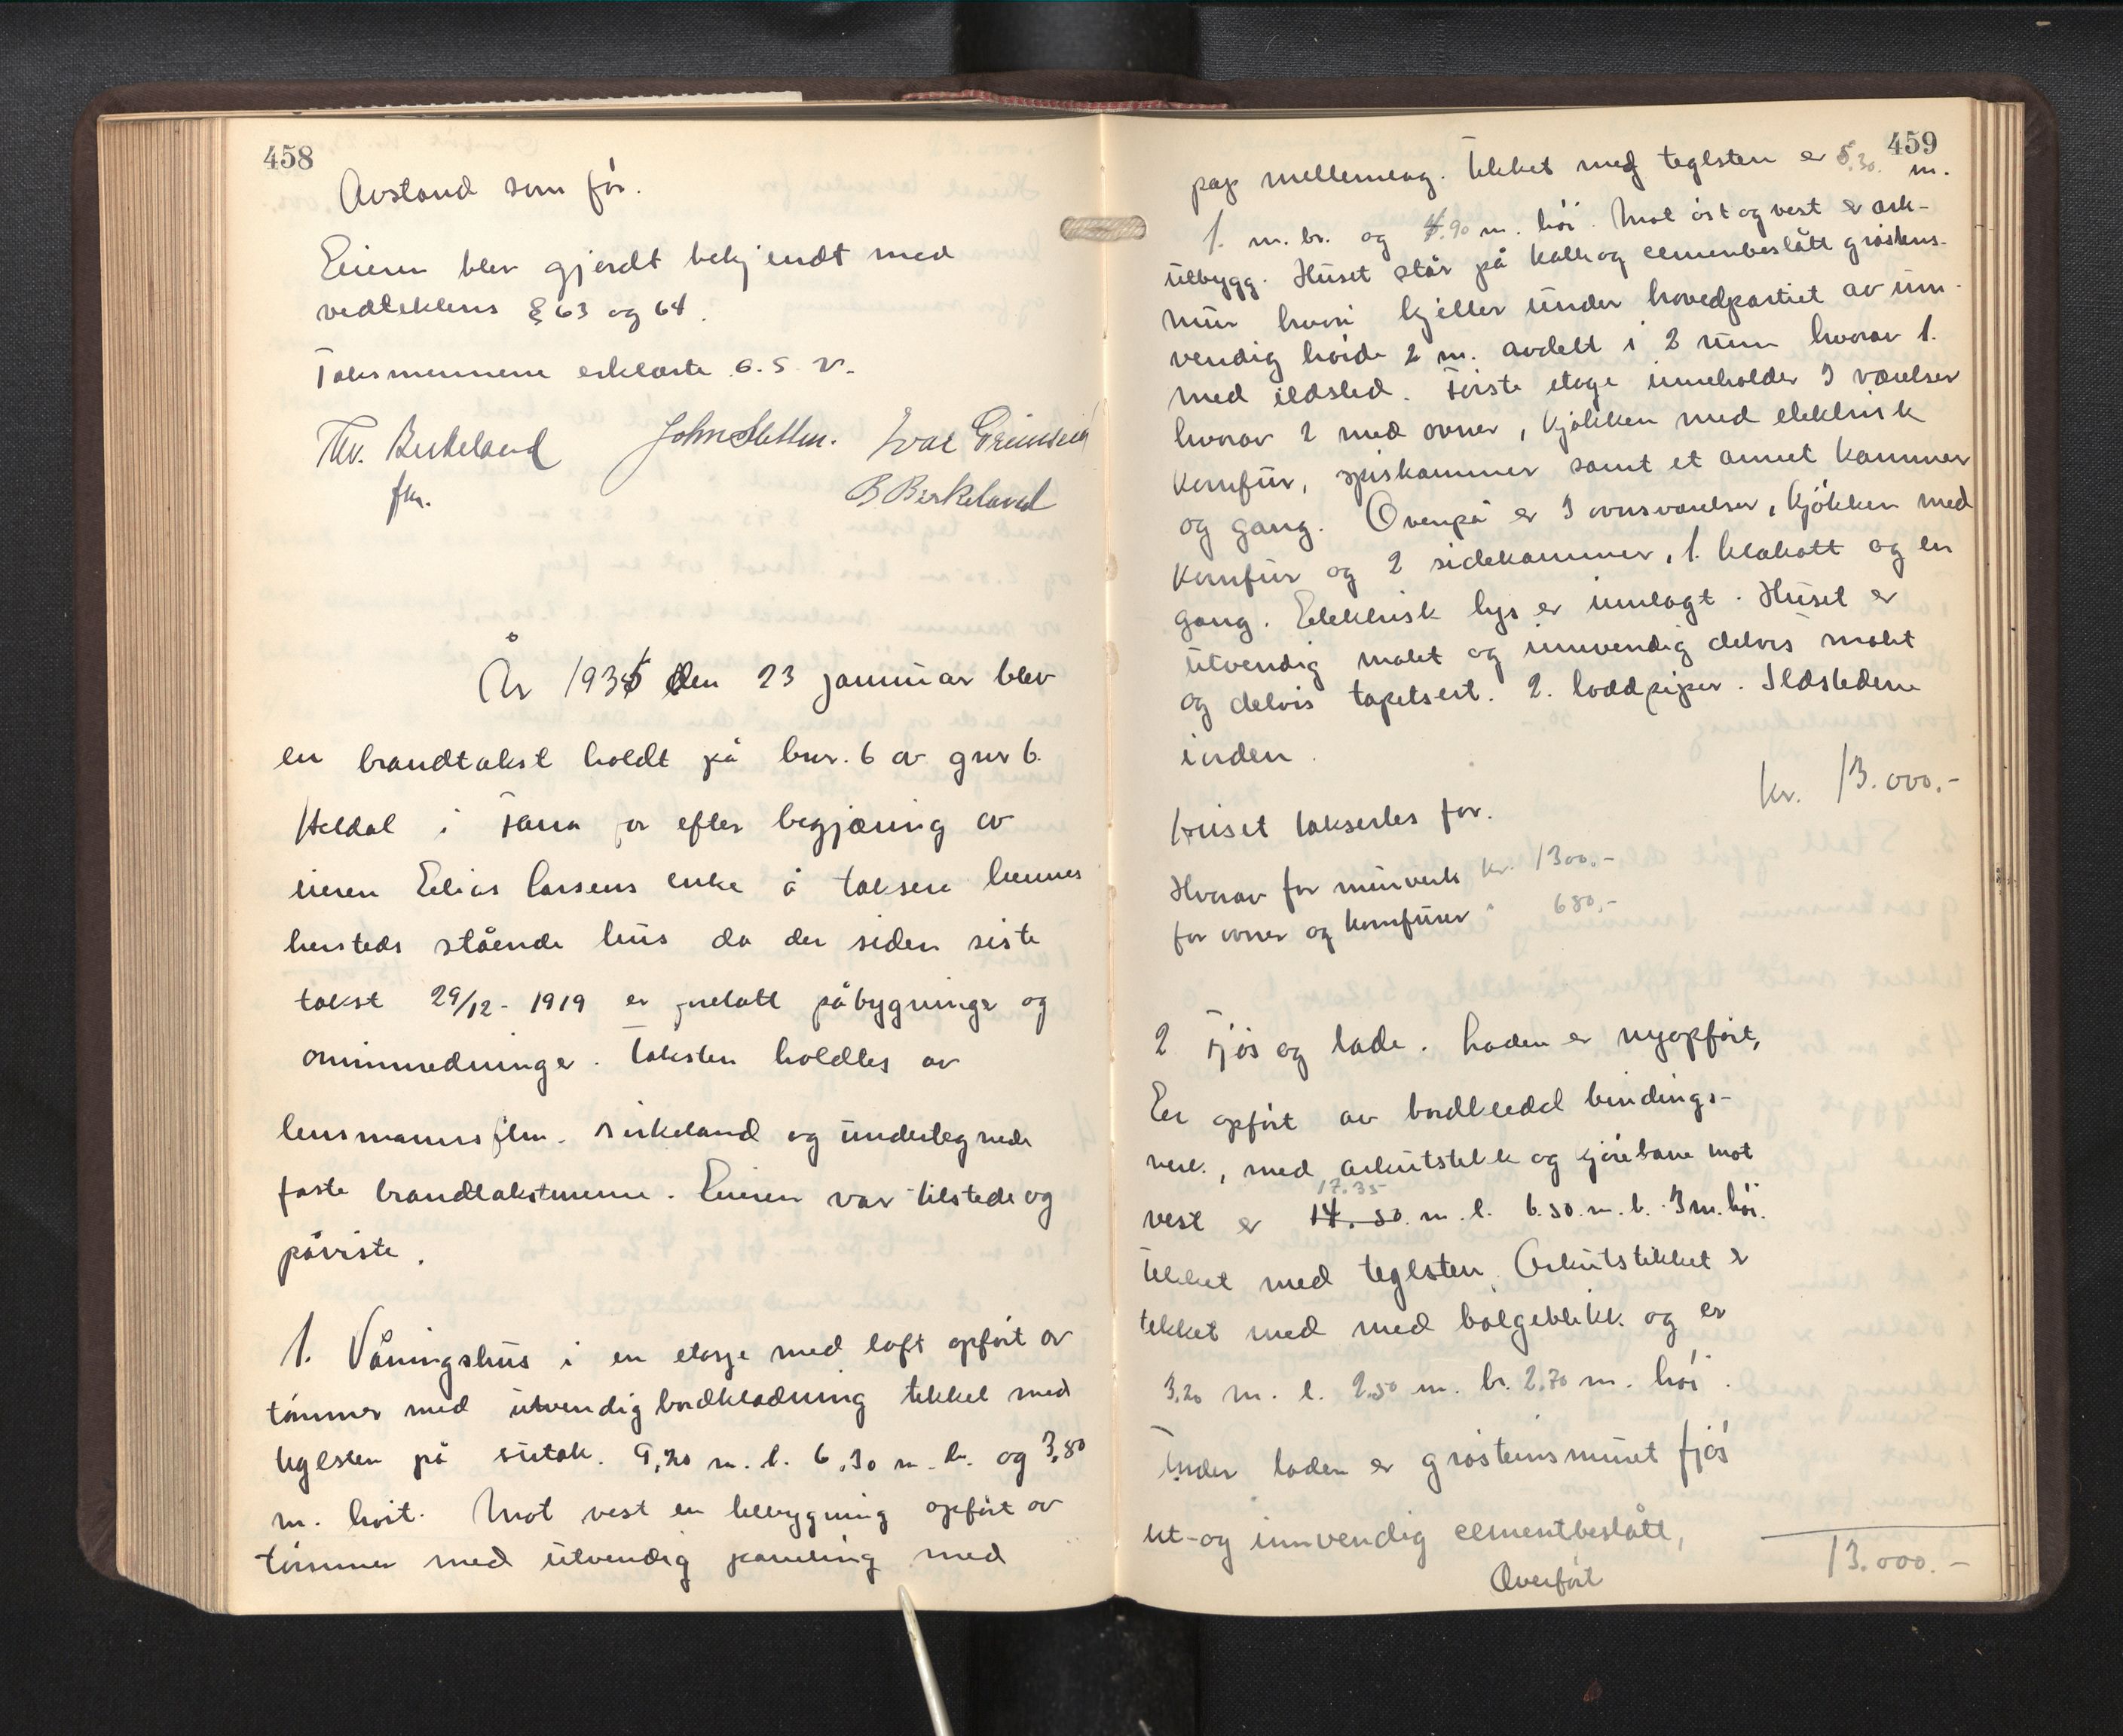 458
Avstand som før.
Eieren blev gjordt bekjendt med
vedtektens § 63 og 64.
Taksmennene erklærte o. s. v.
Thv. Birkeland John Sletten. Ivar Grimseid
fm. B Birkeland
År 1935 den 23 januar blev
en brandtakst holdt på bnr. 6 av gnr 6.
Heldal i Fana for efter begjæring av
eieren Elias Larsens enke å taksere hennes
hersteds stående hus da der siden siste
takst 29/12 - 1919 er foretatt påbygninger og
ominnredninger. Taksten holdtes av
lensmannsfm. Birkeland og undertegnede
faste brandtakstmenn. Eieren var tilstede og
påviste.
1. Våningshus i en etasje med loft opført av
tømmer med utvendig bordklædning tekket med
teglsten på sutak. 9,20 m. l. 6,30 m. br. og 3,80
m. høit. Mot vest en tilbygning opført av
tømmer med utvendig paneling med
459
pap mellemlag. Tekket med teglsten er 5.30. m.
l. m. br. og 4.90 m. høi. Mot øst og vest er ark-
utbygg. Huset står på kalk og cementbeslått gråstens-
mur hvori kjeller under hovedpartiet av inn-
vendig høide 2 m. avdelt i 2 rum hvorav 1.
med ildsted. Første etage inneholder 3 værelser
hvorav 2 med ovner, kjøkken med elektrisk
komfur, spiskammer samt et annet kammer
og gang. Ovenpå er 3 ovnsværelser, kjøkken med
komfur og 2 sidekammer, 1. klækott og en
gang. Elektrisk lys er innlagt. Huset er
utvendig malt og innvendig delvis malet
og delvis tapetsert. 2. loddpiper. Ildstederne
iorden.
Huset takseres for. kr. 13.000.-
Hvorav for murverk kr. 1300.-
for ovner og komfurer " 680,-
2 Fjøs og lade. Laden er nyopført,
Er opført av bordklædd bindings-
verk, med arkutstikk og kjørebane mot
17.35
vest er 14.50. m. l. 6.50. m. b. 3 m. høi.
Tekket med teglsten. Arkutstikket er
tekket med med bølgeblikk og er
3,20 m. l. 2,50 m. br. 2,70 m. høi.
Under laden er gråsteinsmuret fjøs
ut- og innvendig cementbeslått,
Overført 13.000.-